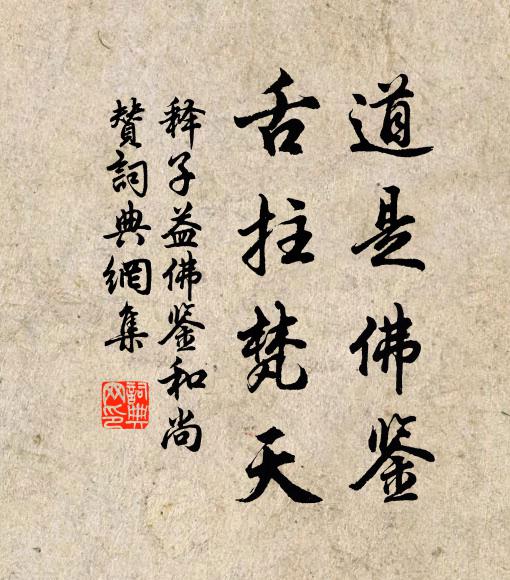 道是佛鉴
舌拄梵天
释子益佛鉴和尚
赞词典網集
詞典
网印